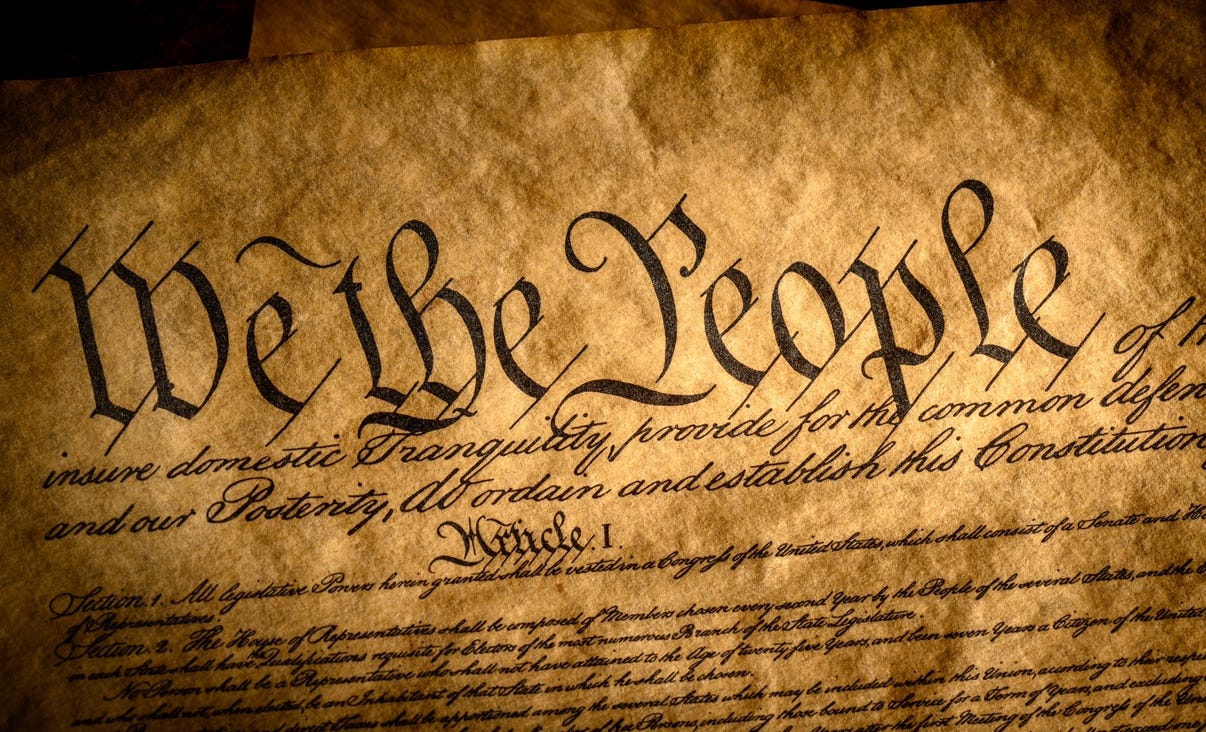 We the People of
insure domestic Tranquility, provide for the common defen
and our Posterity, do ordain and establish this Constitution
Article. I.
Section. 1. All legislative Powers herein granted shall be vested in a Congress of the United States, which shall consist of a Senate and
of Representatives.
Section. 2. The House of Representatives shall be composed of Members chosen every second Year by the People of the several States, and the
in each State shall have the Qualifications requisite for Electors of the most numerous Branch of the State Legislature.
No Person shall be a Representative who shall not have attained to the Age of twenty five Years, and been seven Years a Citizen of the United
and who shall not, when elected, be an Inhabitant of that State in which he shall be chosen.
shall be apportioned among the several States which may be included within this Union, according to their
Persons, including those bound to Service for a Term of Years, and excluding
after the first Meeting of the Congress of the